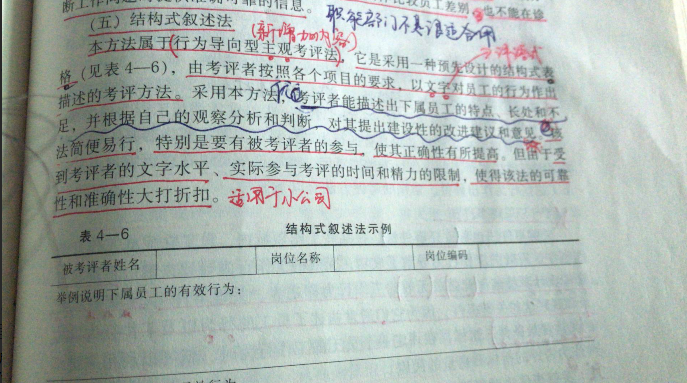 断工作
可靠的信息。
较员工差别
也不能在诊
(五)结构式叙述法
(新增加内容)
本方法属于(行为导向型主观考评法),它是采用一种预先设计的结构式表
格(见表4—6),由考评者按照各个项目的要求,以文字对员工的行为作出
描述的考评方法。采用本方法,考评者能描述出下属员工的特点、长处和不
足,并根据自己的观察分析和判断,对其提出建设性的改进建议和意见。该
法简便易行,特别是要有被考评者的参与,使其正确性有所提高。但由于受
到考评者的文字水平、实际参与考评的时间和精力的限制,使得该法的可靠
性和准确性大打折扣。适用于小公司
表4—6 结构式叙述法示例
被考评者姓名 岗位名称 岗位编码
举例说明下属员工的有效行为: